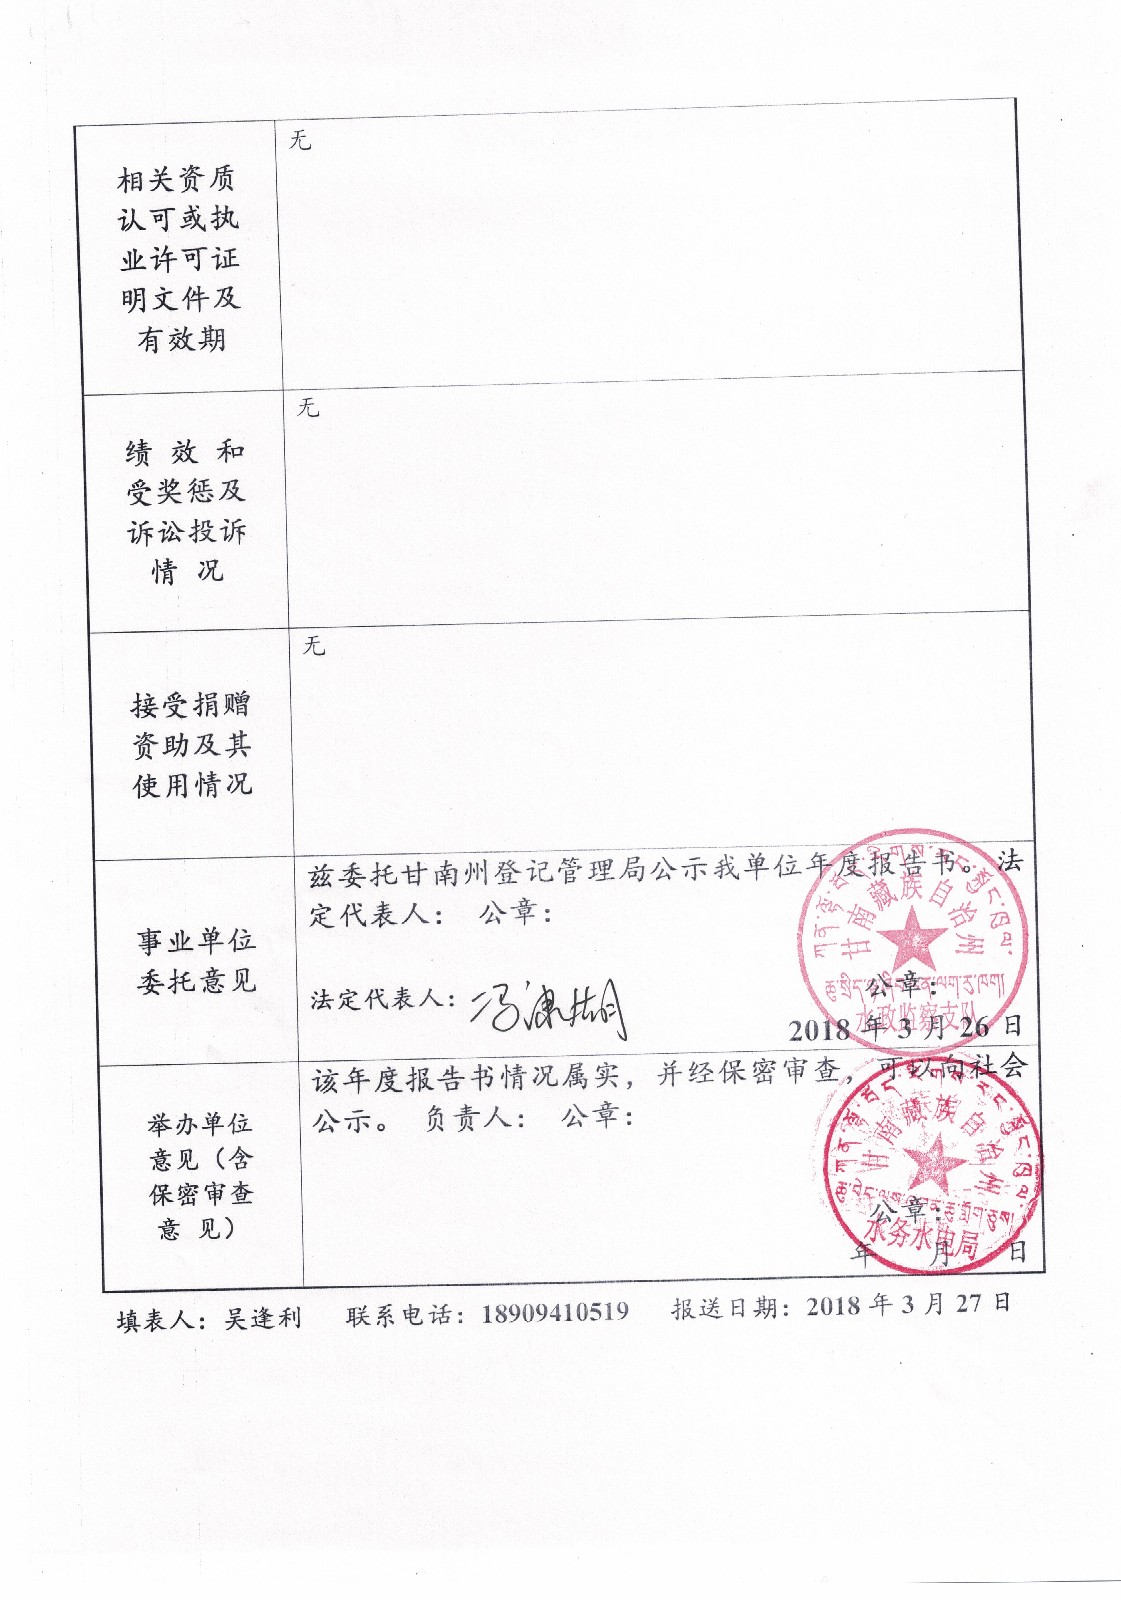 相关资质
认可或执
业许可证
明文件及
有效期
无
绩 效 和
受奖惩及
诉讼投诉
情 况
无
接受捐赠
资助及其
使用情况
无
事业单位
委托意见
兹委托甘南州登记管理局公示我单位年度报告书。 法
定代表人： 公章：
法定代表人：
公章：
2018 年 3 月 26 日
甘南藏族自治州
水政监察支队
举办单位
意见（含
保密审查
意 见）
该年度报告书情况属实，并经保密审查，可以向社会
公示。 负责人： 公章：
公章：
年 月 日
甘南藏族自治州
水务水电局
填表人：吴逢利 联系电话：18909410519 报送日期：2018 年 3 月 27 日